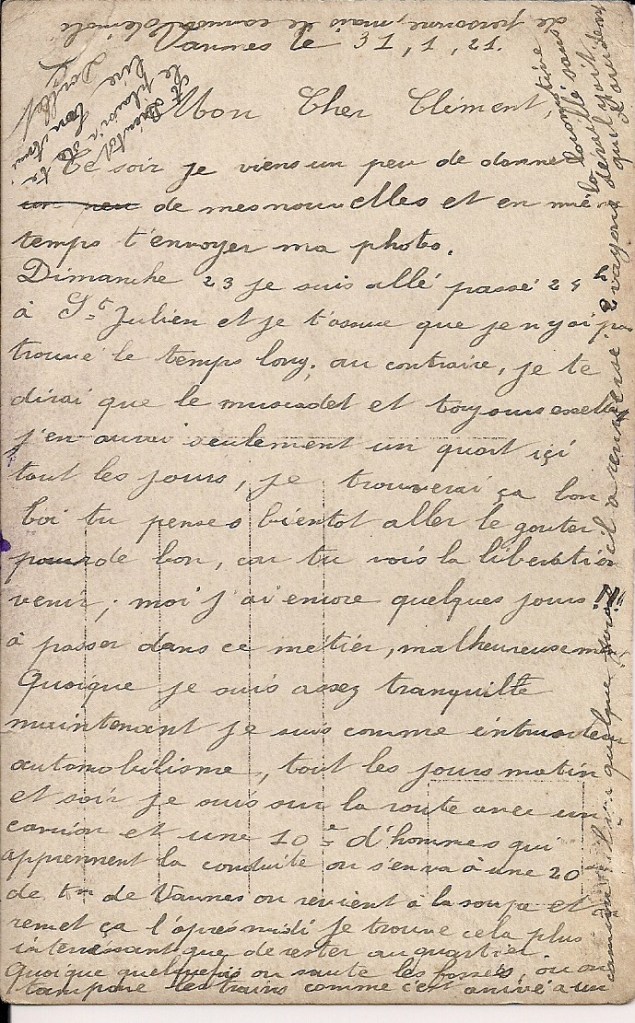 Vannes le 31, 1, 21.
Mon Cher Clément,
Ce soir je viens un peu de donner
un peu de mes nouvelles et en même
temps t'envoyer ma photo.
Dimanche 23 je suis allé passé 24 h
à St Julien et je t'assure que je n'y ai pas
trouvé le temps long, au contraire, je te
dirai que le muscadet et toujours
j'en aurai seulement un quart içi
tout les jours, je trouverai ça bon
toi tu penses bientot aller le gouter
pour de bon, car tu vois la libération
venir, moi j'ai encore quelques jours !!!
à passer dans ce métier, malheureusement
Quoique je suis assez tranquille
maintenant je suis comme
automobilisme, tout les jours matin
et soir je suis sur la route avec un
camion et une 10e d'hommes qui
apprennent la conduite on s'en va à une 20e
de km de Vannes on revient à la soupe et
remet ça l'après midi je trouve cela plus
intéressant que de rester au quartier.
Quoique quelquefois on saute les fossés, ou on
tampone les trains comme c'est arrivé à un
camion il y a quelques jours il a renversé 2 vagons déraillé
la locomotive
de personne, mais de